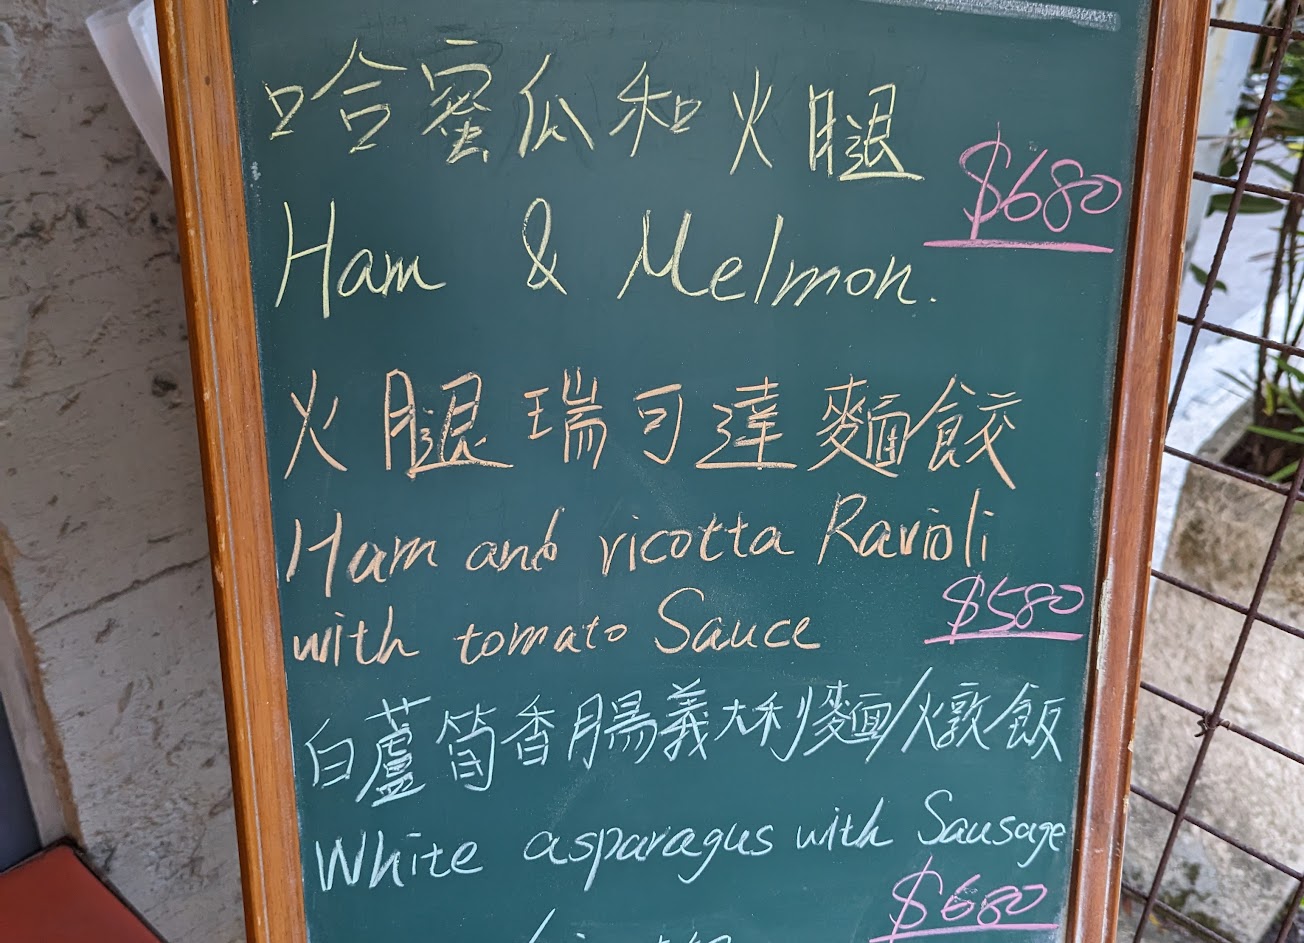 哈蜜瓜和火腿
$680
Ham & Melmon.
火腿瑞可達麵餃
Ham and ricotta Ravioli
with tomato Sauce
$580
白蘆筍香腸義大利麵/燉飯
White asparagus with Sausage
$680